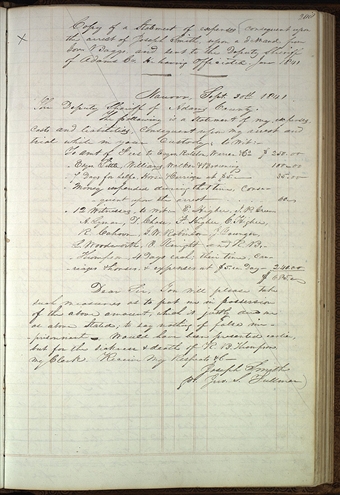 Copy of a Statement of expenses consequent upon
the arrest of Joseph Smith, upon a demand from
Gov and sent to the Deputy Sheriff
of Adams Co. Ill. having officiated June 1841.
Nauvoo, Sept. 30th 1841.
The Deputy Sheriff of Adams County.
The following is a statement of my expenses,
costs and liabilities, consequent upon my arrest and
trial while in your custody, to Wit.
To amt of Fees to Esqrs Ralston, Warren &Co $ 250.00
" Esqrs Little, Williams, Walker & Browning 100.00
" 7 Days for self & Horse & Carriage at $5.— 35.00
" Money expended during that time, conse-
quent upon the arrest 60.
" 12 Witnesses, to wit
A. Lyman, Higbee, C. Higbee,
J. W. Robinson
L. Woodworth, and R. B.
Thompson 4 Days each, their time, car-
riages & horses & expenses at $5. a Day— 240.00
Dear Sir, You will please take
such measures as to put me in possession
of the above amount, which is justly due me
as above stated; to say nothing of false im-
prisonment. would have been presented earlier
but for the sickness & death of R. B. Thompson
my Clerk. Receive my Respects &c—
Joseph Smith